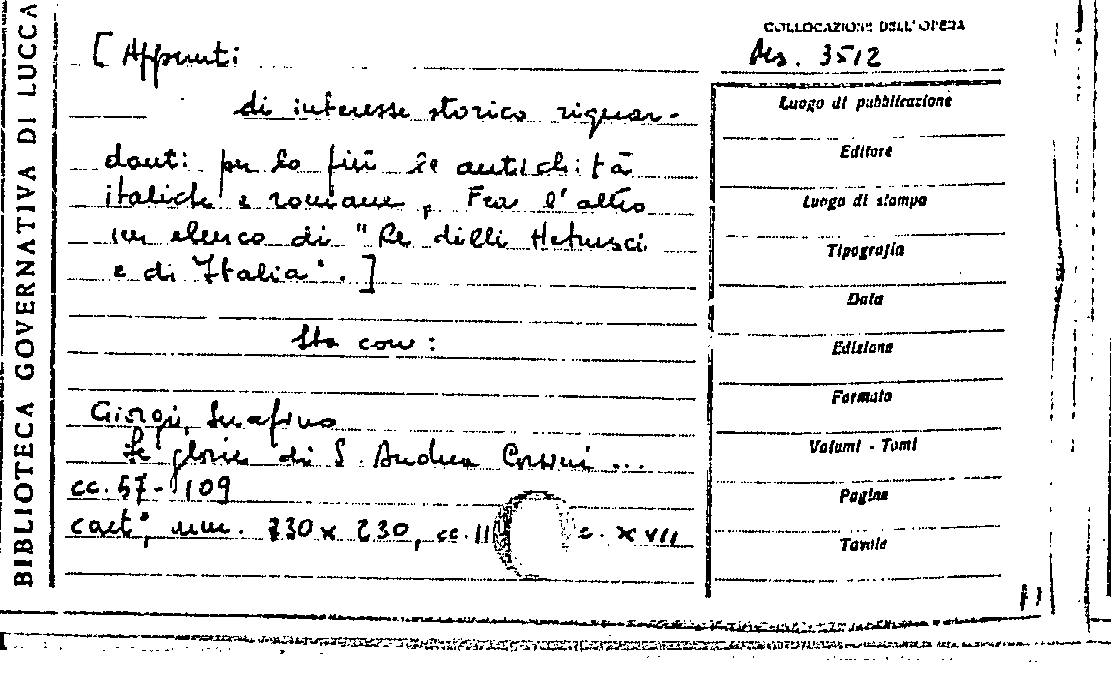 BIBLIOTECA GOVERNATIVA DI LUCCA
COLLOCAZIONE DELL'OPERA
Ms. 3512
[Appunti
di interesse storico riguar-
danti per lo più le antichità
italiche e romane, Fra l'altro
un elenco di "Re delli Hetrusci
e di Italia".]
Sta con:
Giorgi, Serafino
Le glorie di S. Andrea Corsini ...
cc. 57-109
cart., mm. 330 x 230, cc. II c. XVII
Luogo di pubblicazione
Editore
Luogo di stampa
Tipografia
Data
Edizione
Formato
Volumi - Tomi
Pagine
Tavole